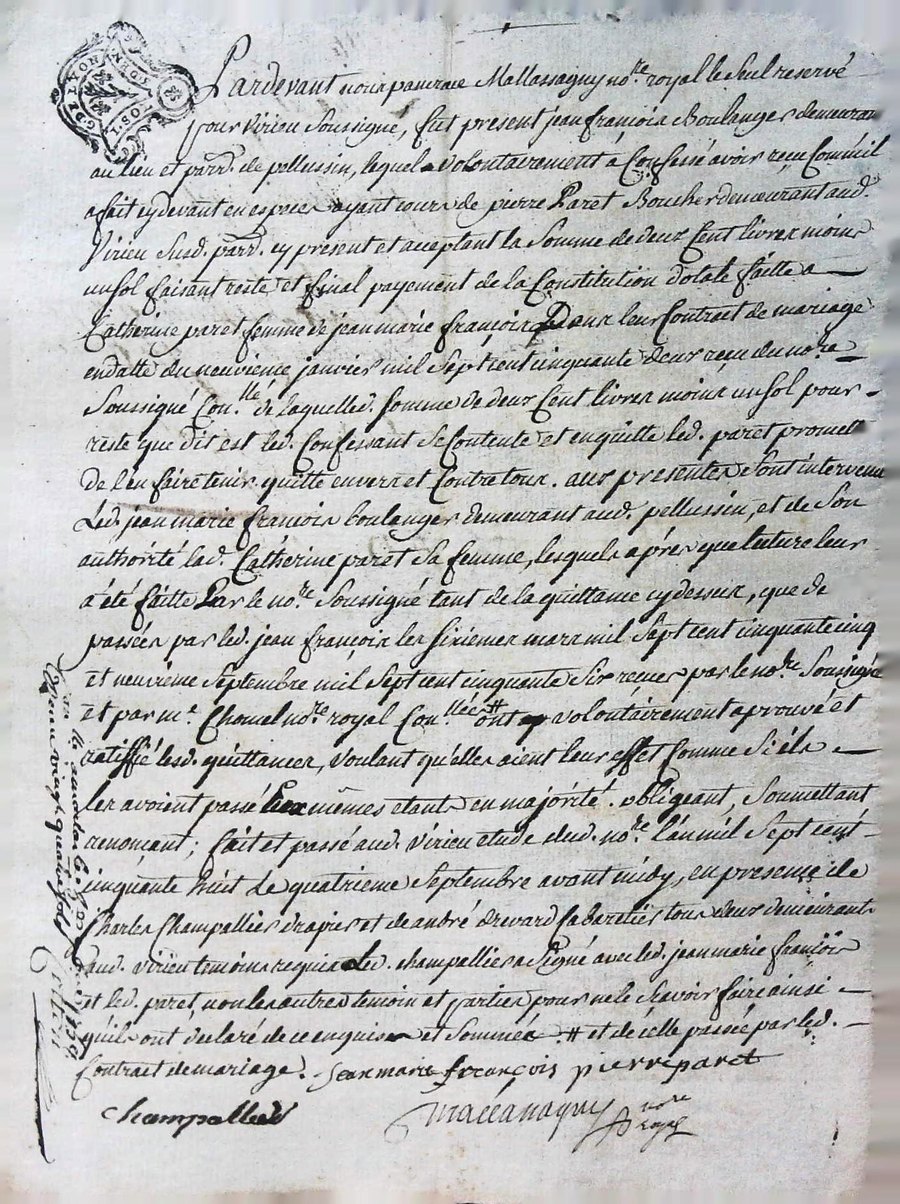 Pardevant nous pancrace Mallassagny no.re royal le seul reservé
pour virieu soussigné, fut present jean françois Boulanger demeurant
au lieu et parr. de pellussin, lequel a volontairement a Confessé avoir reçu Comm'il
a fait cydevant en especes ayant cours de pierre Paret Boucher demeurant aud.
Virieu susd. parr. cy present et aceptant la somme de deux Cent livres moins
un sol faisant reste et final payement de la Constitution dotale faitte a
Catherine paret femme de jean marie françois Dans leur Contrat de mariage
en datte du neuvieme janvier mil sept cent cinquante deux reçu du no.re
soussigné Con.llé de laquelle d. somme de deux Cent livres moins un sol pour
reste que dit est led. Confessant se Contente et en quitte led. paret promet
de l'en faire tenir quitte envers et Contre tous. aux presentes sont intervenus
Led. jean marie françois boulanger demeurant aud. pellussin, et de son
authorité lad. Catherine paret sa femme, lesquels aprés que lecture leur
a été faitte Par le no.re soussigné tant de la quittance cy dessus, que de
passées par led. jean françois les sixieme mars mil sept cent cinquante cinq
et neuvieme septembre mil sept cent cinquante six reçues par le no.re soussigné
et par m.e Chomel no.re royal Con.llées # ont volontairement aprouvé et
ratiffié lesd. quittances, voulant qu'elles aient leur effet Comme si ils
les avoient passé Eux mêmes etant en majorité. obligeant, soumettant
renonçant; fait et passé aud. virieu etude dud. no.re l'an mil sept cent
cinquante huit Le quatrieme septembre avant midy, en presence de
Charles Champallier drapier et de andré drevard Cabaretier tous deux demeurants
aud. virieu temoins requis Led. champallier a signé avec led. jean marie françois
et led. paret, non les autres temoin et parties pour ne le scavoir faire ainsi
qu'ils ont declaré de ce enquis et sommés # et de celle passée par led.
Contrat de mariage. jean marie françois pierre paret
Champallier Mallassagny no.re royal
vingt quatre sols